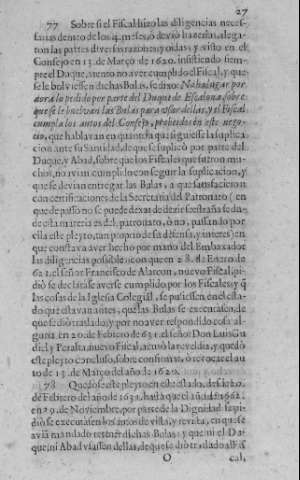 27
77 Sobre si el Fiscal hizo las diligencias necef-
farias dentro de los 4. meses, ò devio hazerlas, alega-
ron las partes diversas razones; y oidas, y visto en el
Consejo en 13. de Março de 1620. insistiendo siem-
pre el Duque, siento no aver cumplido el Fiscal, y que
se le bolviessen dichas Bulas, se dixo: No ha lugar por
aora lo pedido por parte del Duque de Escalona sobre
que se le buelvan las Bulas para usar dellas, y el Fiscal
cumpla los autos del Consejo, proveidos en este nego-
cio, que hablavan en quanto à que siguiesse la suplica-
cion ante su Santidad, de que se suplicò por parte del
Duque, y Abad, sobre que los Fiscales que fueron mu-
chos, no avian cumplido con seguir la suplicacion, y
que se devian entregar las Bulas, a que satisfacieron
con certificaciones de la Secretaria del Patronato (en
que de passo no se puede dexar de dezir se estraña se du-
de esta materia es del patronato, ò no, passando por
ella este pleyto, tan propio de su defensa, y interes) en
que constava aver hecho por mano del Embaxador
las diligencias possibles: con que en 28. de Enero de
621. el señor Francisco de Alarcon, nuevo Fiscal, pi-
diò se declarasse averse cumplido por los Fiscales; y q̃
las cosas de la Iglesia Colegial, se pusiessen en el esta-
do que estavan antes, que las Bulas se executassen, de
que se diò traslado; y por no aver respondido cosa al-
guna en 20. de Febrero de 631. el señor Don Luis Gu-
diel y Peralta, nuevo Fiscal, acusò la reveldia, y quedò
este pleyto concluso, sobre confirmar, ò revocar el au-
to de 13. de Março del año de 1620.
78 Quedòse este pleyto en este estado, desde 20.
de Febrero del año de 1631. hasta que el año de 1662.
en 29. de Noviembre, por parte de la Dignidad se pi-
diò se executassen los autos de vista, y revista, en que se
avia mandado retener dichas Bulas; y que ni el Du-
que, ni Abad usassen dellas, de que se diò traslado al Fis-
O cal,